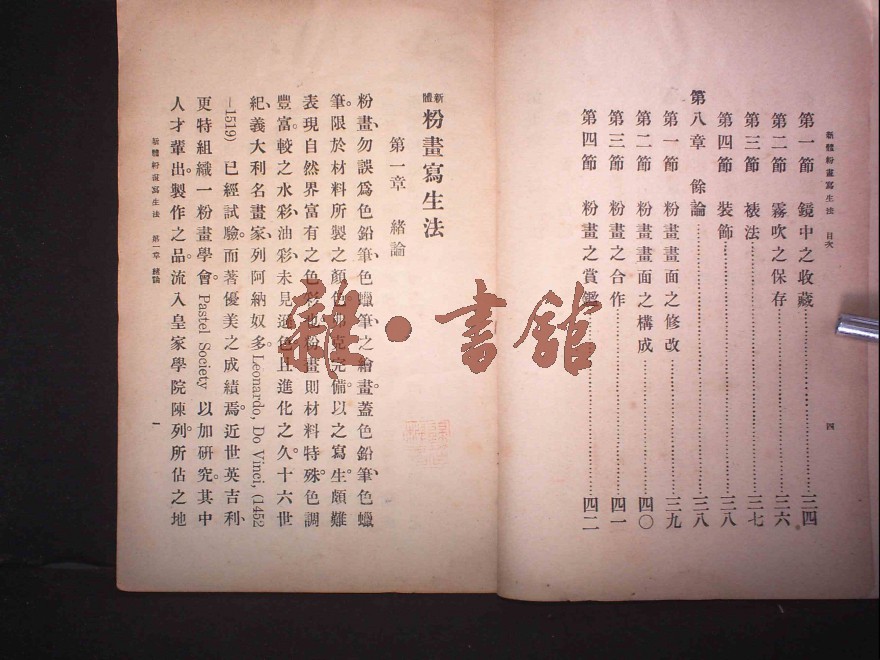 新體粉畫寫生法 目次
第一節 鏡中之收藏……三四
第二節 霧吹之保存……三六
第三節 裱法……三七
第四節 裝飾……三八
第八章 餘論……三八
第一節 粉畫畫面之修改……三九
第二節 粉畫畫面之構成……四〇
第三節 粉畫之合作……四一
第四節 粉畫之賞鑑……四二
四
新體 粉畫寫生法
第一章 緒論
粉畫、勿誤爲色鉛筆、色蠟筆之繪畫。蓋色鉛筆色蠟
筆。限於材料所製之顏色弗克完備。以之寫生。頗難
表現自然界富有之色彩也。粉畫則材料特殊。色調
豐富。較之水彩、油彩、未見遜色。且進化之久。十六世
紀。義大利名畫家、列阿納奴多。Leonardo, Do Vinci, (1452
–1519) 已經試驗。而著優美之成績焉。近世英吉利、
更特組織一粉畫學會。Pastel Society 以加研究。其中
人才輩出。製作之品。流入皇家學院陳列。所佔之地
新體粉畫寫生法 第一章 緒論
一
雜·書館